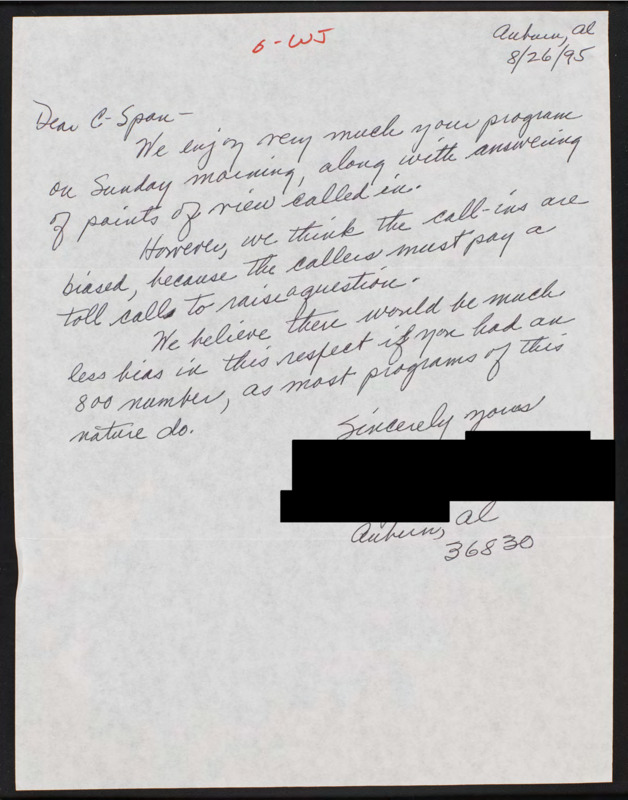 6-WJ
Auburn, Al
8/26/95
Dear C-Span-
We enjoy very much your program
on Sunday morning, along with answering
of points of view called in.
However, we think the call-ins are
biased, because the callers must pay a
toll calls to raise a question.
We believe there would be much
less bias in this respect if you had an
800 number, as most programs of this
nature do.
Sincerely yours
Auburn, Al
36830